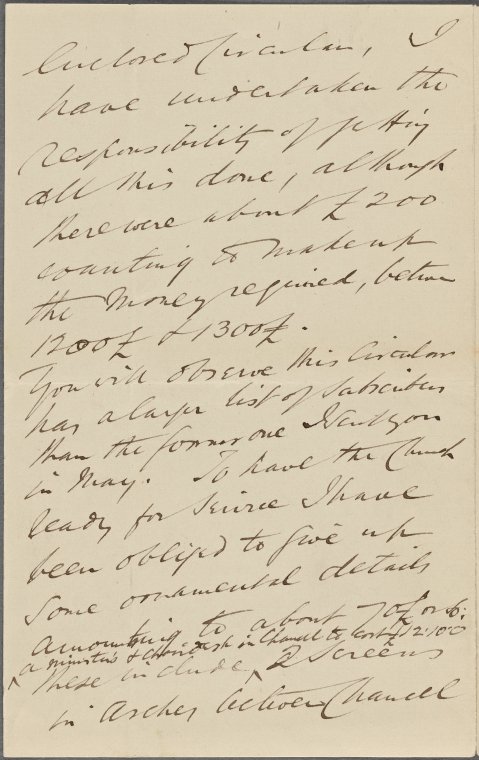 Enclosed Circular, I
have undertaken the
responsibility of getting
all this done, although
there were about £200
wanting to make up
the money required, between
1200£ & 1300£.
You will observe this Circular
has a larger list of Subscribers
than the former one I sent you
in May. To have the Church
ready for Service I have
been obliged to give up
some ornamental details
amounting to about 70£ or
^ a ministers & choir desk in Chancel to cost £12:10:0
these include ^ 2 Screens
in Arches between Chancel